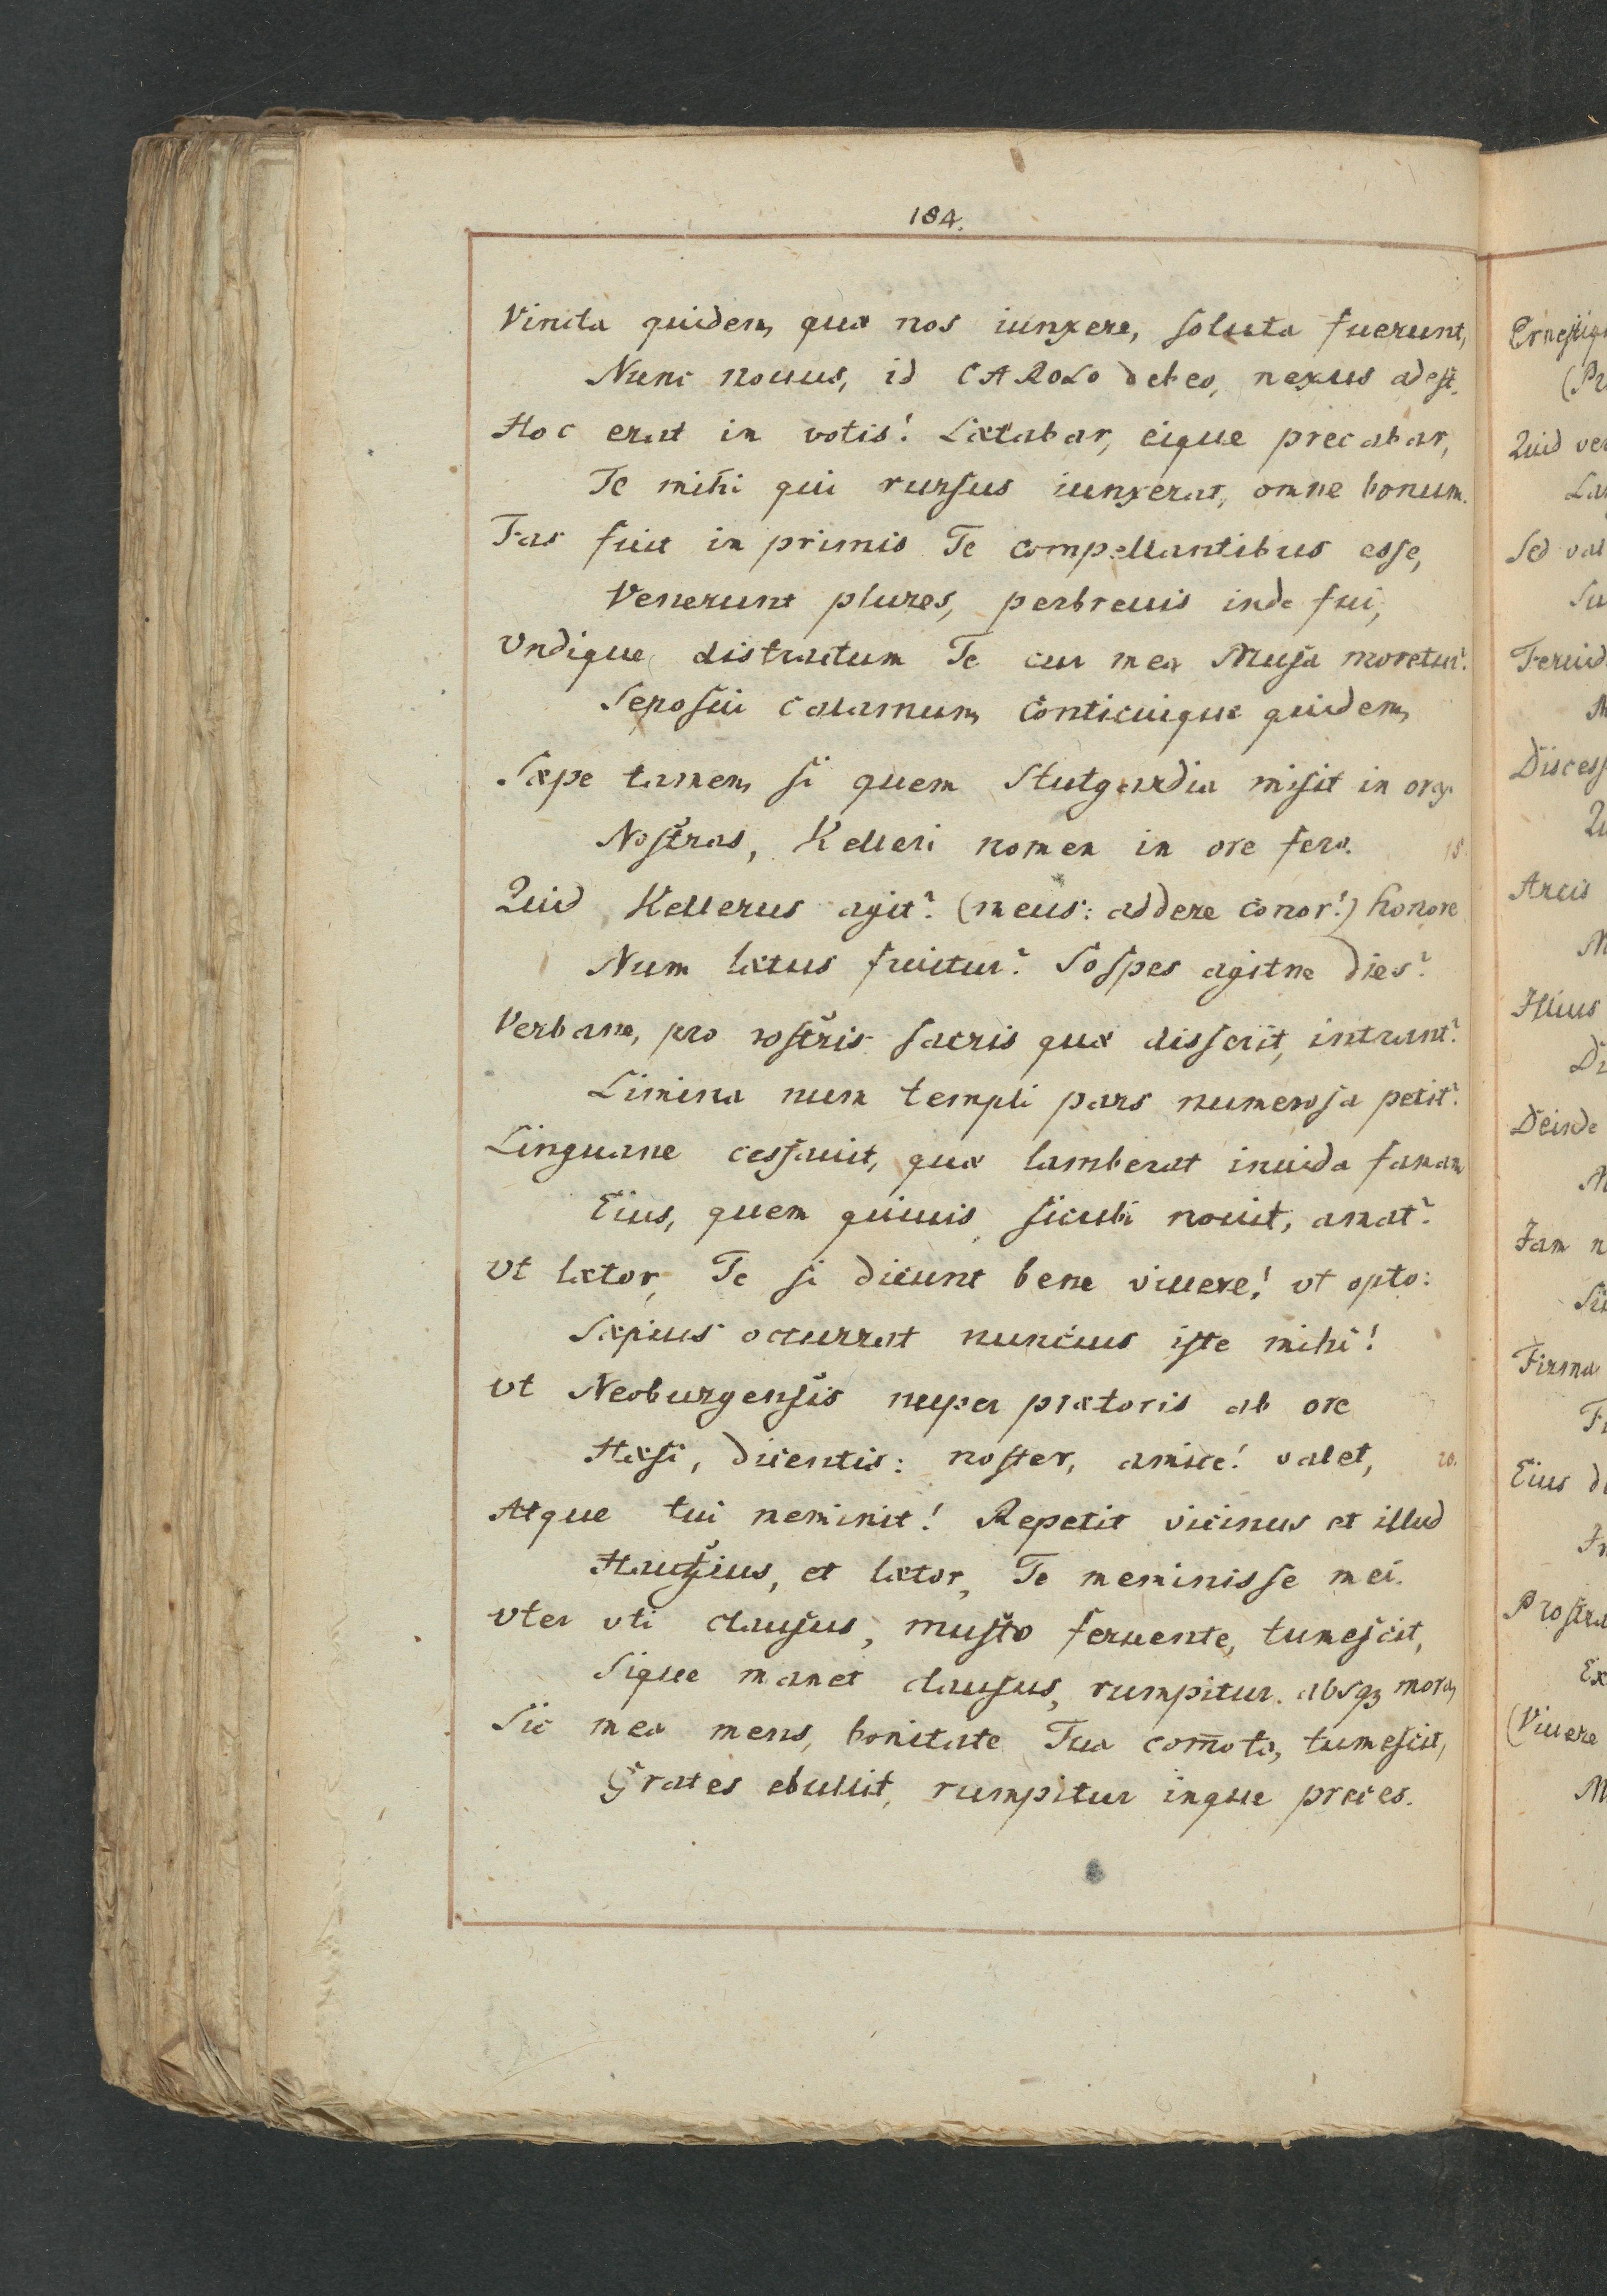 184.
Vincla quidem, quæ nos iunxere, soluta fuerunt,
Nunc nouus, id CAROLO debeo, nexus adest.
Hoc erat in votis! Lætabar, eique precabar,
Te mihi qui rursus iunxerat, omne bonum.
Fas fuit in primis Te compellantibus esse,
Venerunt plures, perbreuis inde fui,
Vndique distractum Te cur mea Musa moretur?
Seposui calamum, conticuique quidem,
Sæpe tamen, si quem Stutgardia misit in oras
Nostras, Kelleri nomen in ore fero.
Quid Kellerus agit? (meus: addere conor!) honore
Num lætus fruitur? Sospes agitne dies?
Verbane, pro rostris sacris quæ disserit, intrant?
Limina num templi pars numerosa petit?
Linguane cessauit, quæ lamberat inuida famam
Eius, quem quiuis, sicubi nouit, amat?
Vt lætor, Te si dicunt bene viuere! vt opto:
Sæpius occurrat nuncius iste mihi!
Vt Neoburgensis nuper prætoris ab ore
Hæsi, dicentis: noster, amice! valet, 20.
Atque tui meminit! Repetit vicinus et illud
Hauffius, et lætor, Te meminisse mei.
Vter vti clausus, musto feruente, tumescit,
Sique manet clausus, rumpitur absq3 mora,
Sic mea mens, bonitate Tua com̄ota, tumescit,
Grates ebullit, rumpitur inque preces.
Quid
Sed
Arcis
Illius
Deinde
Jam
Eius
Ex
(Viuere